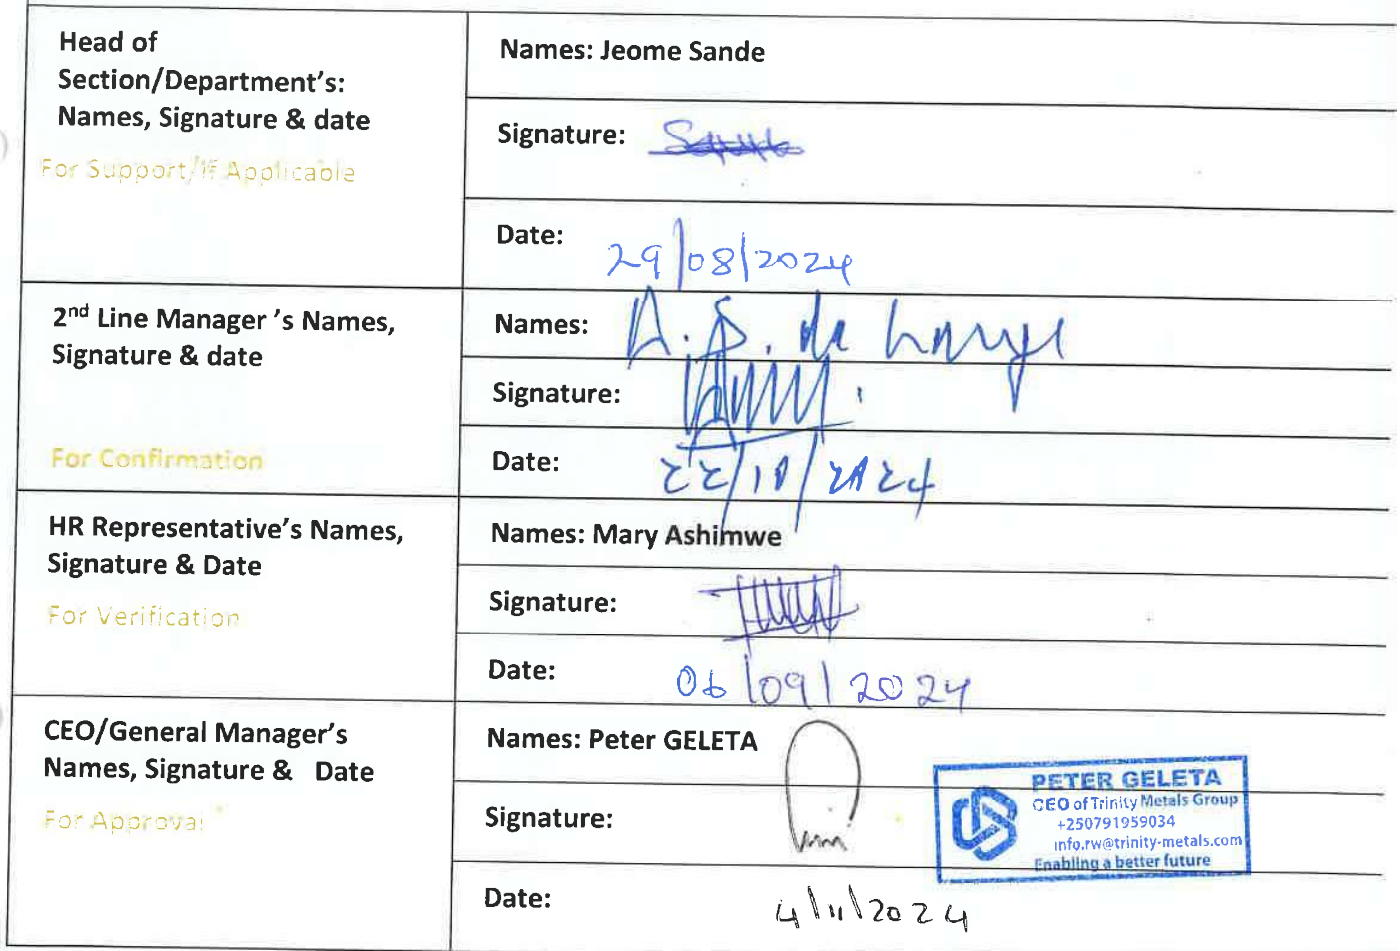 Head of
Section/Department's:
Names, Signature & date
For Support/If Applicable
Names: Jeome Sande
Signature:
Date: 29/08/2024
2nd Line Manager 's Names,
Signature & date
For Confirmation
Names: A.S. de Lange
Signature:
Date: 22/10/2024
HR Representative's Names,
Signature & Date
For Verification
Names: Mary Ashimwe
Signature:
Date: 06/09/2024
CEO/General Manager's
Names, Signature & Date
For Approval
Names: Peter GELETA
Signature:
Date: 4/11/2024
PETER GELETA
CEO of Trinity Metals Group
+250791959034
info.rw@trinity-metals.com
Enabling a better future